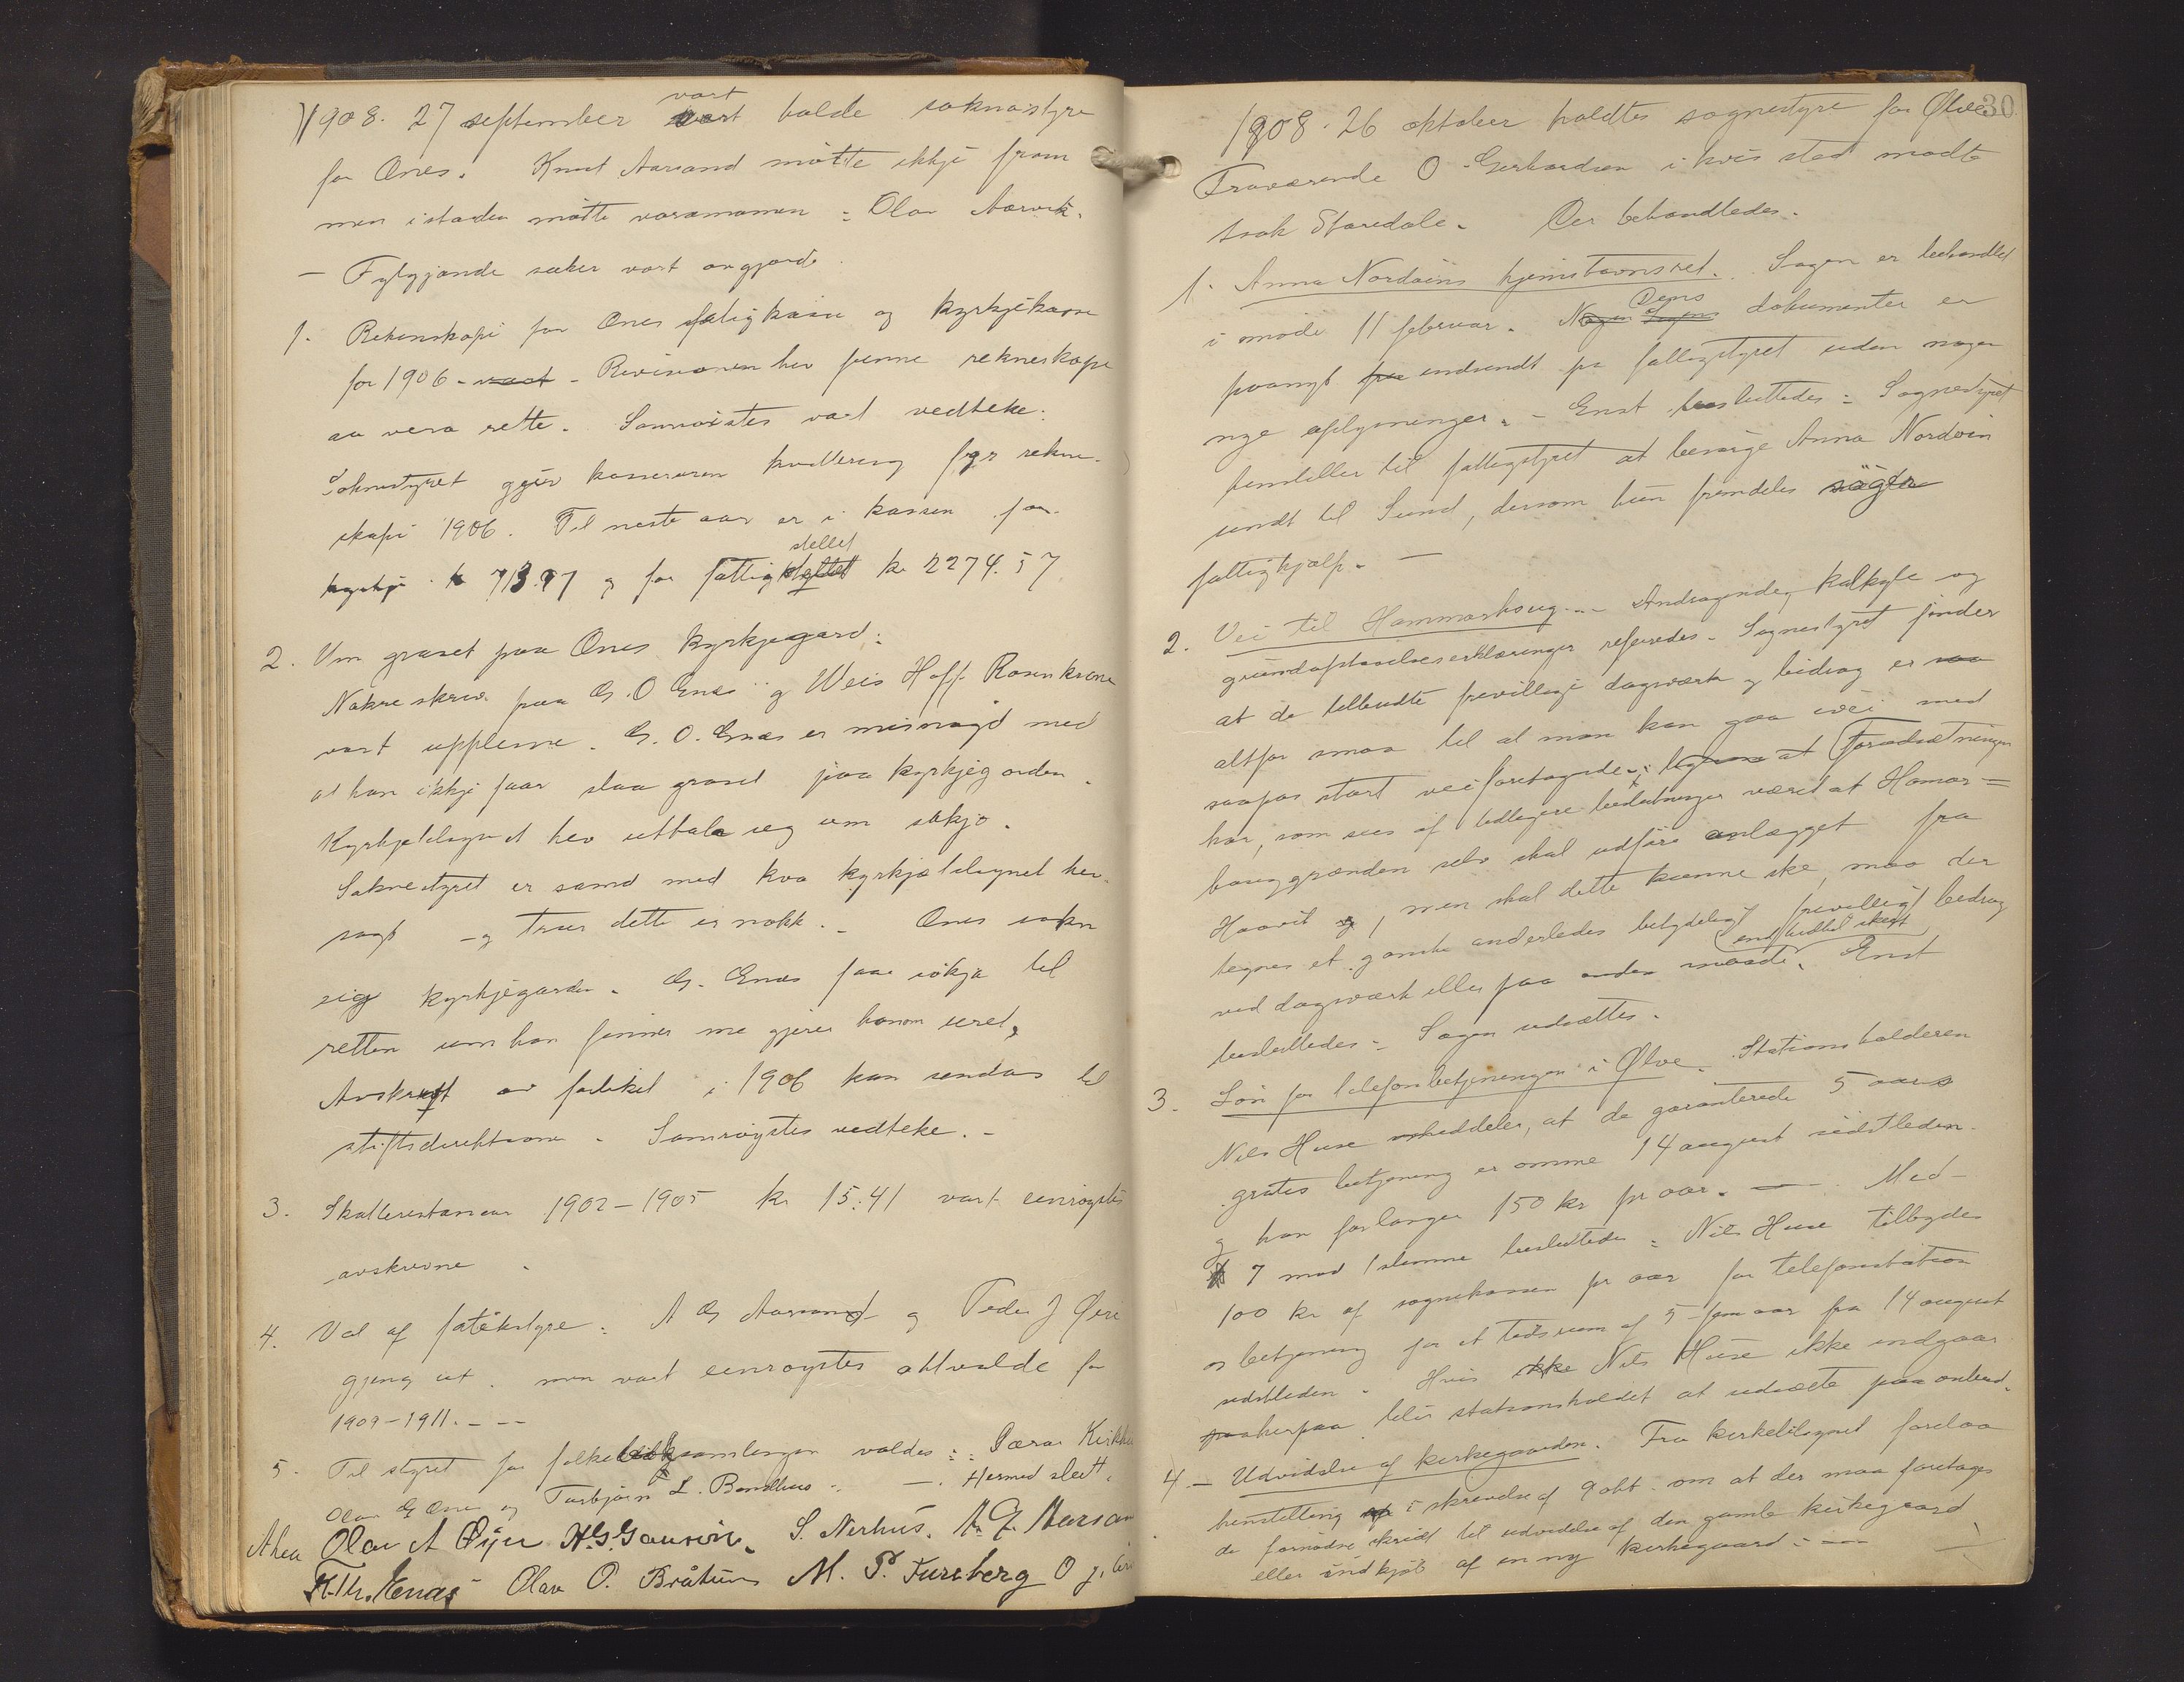 1908. 27 september vart halde soknastyre
for Ænes. Knut Aarsand møtte ikkje fram
men istaden møtte varamannen: Olav Aarvik.
— Fylgjande saker vart avgjorde.
1. Rekenskapi for Ænes fatigkasse og kyrkjekasse
for 1906 - vart - Revisoren hev funne rekneskape
aa vera rette. Samrøistes vart vedteke:
Soknestyret gjev kasseraren kvittering fyr rekne-
skapi 1906. Til neste aar er i kassen for
stellet
kyrkje kr 713.97 og for fattigstellet kr 2274.57
2. Um graset paa Ænes kyrkjegard:
Nokre skriv fraa G. O. Enæs og Weis Hoff Rosenkrone
vart upplesne. G. O. Enæs er misnøgd med
at han ikkje faar slaa graset paa kyrkjegarden.
Kyrkjetilsynet hev uttala seg um sakjo.
Soknestyret er samd med kva kyrkjetilsynet hev
sagt - og truer dette er nokk. - Ænes sokn
eig kyrkjegarden. G. Enæs faar søkja til
retten um han finner me gjerer honom uret,
Avskrift av forliket i 1906 kan sendas til
stiftsdirektionen. Samrøystes vedteke. -
3. Skatterestansar 1902-1905 kr 15.41 vart einrøystes
avskrivne.
4. Val af fatikstyre: A G Aarsand og Peder J Øire
gjeng ut. men vart einrøystes attvalde for
1909-1911. - - -
5. Til styret for folkeboksamlingen valdes: Særar Kirkhus
Olav G Ænes og Torbjørn L. Bondhus - Hermed slutt.
Olav A Øyre N. G. Gausvik. S. Nerhus. A. G. Aarsan
H. Th. Enæs Olav O. Bråtun M. P. Fureberg O J.
30
1908. 26 oktober holdtes sognestyre for Ølve
Fraværende O Gerhardsen i hvis sted mødte
Isak Staredale. Der behandledes.
1. Anna Nordvins hjemstavnsret. Sagen er behandlet
Dens
i møde 11 februar. Nogen Sagens dokumenter er
paanyt fra indsendt fra fattigstyret uden nogen
nye oplysninger. - Enst. besluttedes: Sognestyret
henstiller til fattigstyret at besørge Anna Nordvin
sendt til Sund, dersom hun fremdeles søger
fattighjælp. —
2. Vei til Hammarhaug. - Andragende, kalkyle og
grundafstaaelseserklæringer refereredes. Sognestyret finder
at de tilbudte frivillige dagsværk og bidrag er saa
altfor smaa til at man kan gaa ivei med
saapas stort veiforetagende; at Forudsætningen
har, som sees af tidligere beslutninger været at Hamar=
hauggrænden selv skal udføre anlægget fra
Haavik og, men skal dette kunne ske, maa der
tegnes et ganske anderledes betydeligt frivilligt bidrag
end hidtil skeet
ved dagsværk eller paa anden maade. Enst
besluttedes: Sagen udsættes.
3. Løn for telefonbetjeningen i Ølve. Stationsholderen
Nils Huse meddeler, at de garanterede 5 aars
gratis betjening er omme 14 august sidstleden.
og han forlanger 150 kr pr aar. — Med-
7 mod 1 stemme besluttedes: Nils Huse tilbydes
100 kr af sognekassen pr aar for telefonstation
os betjening for et tidsrum af 5 fem aar fra 14 august
sidstleden. Hvis ikke Nils Huse ikke indgaar
herpaa blir stationsholdet at udsætte paa anbud.
4. - Udvidelse af kirkegaarden. Fra kirketilsynet forelaa
henstilling i skrivelse af 9 okt. om at der maa foretages
de fornødne skridt til udvidelse af den gamle kirkegaard
eller indkjøb af en ny kirkegaard: —